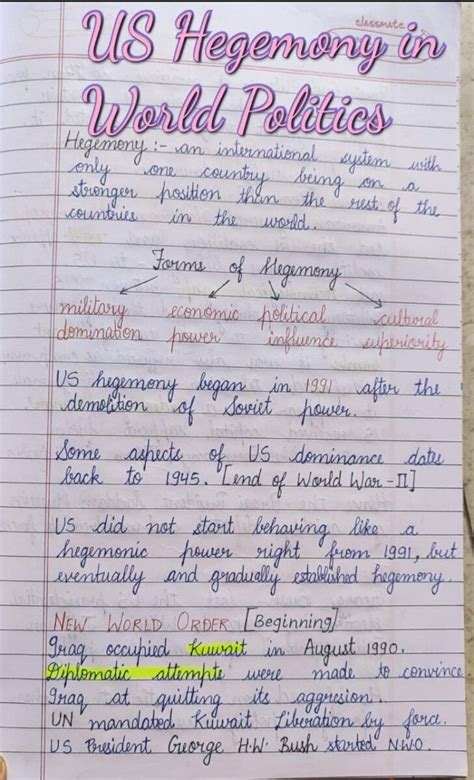 classmate
US Hegemony in
World Politics
Hegemony :- an international system with
only one country being on a
stronger position than the rest of the
countries in the world.
Forms of Hegemony
military economic political cultural
domination power influence superiority
US hegemony began in 1991 after the
demolition of Soviet power.
Some aspects of US dominance dates
back to 1945. [end of World War-II]
US did not start behaving like a
hegemonic power right from 1991, but
eventually and gradually established hegemony.
NEW WORLD ORDER [Beginning]
Iraq occupied Kuwait in August 1990.
Diplomatic attempts were made to convince
Iraq at quitting its aggresion.
UN mandated Kuwait Liberation by force.
US President George H.W. Bush started NWO.